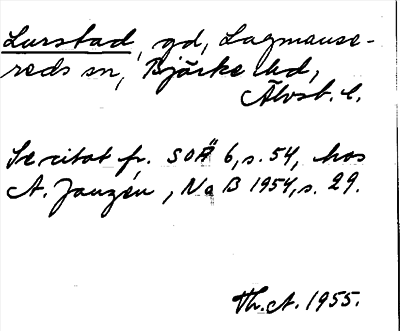 Lurstad, gd, Lagmanse-
reds sn, Bjärke hd,
Älvsb. l.
Se citat fr. SOÄ 6, s. 54, hos
A. Janzén, NoB 1954, s. 29.
Th. A. 1955.